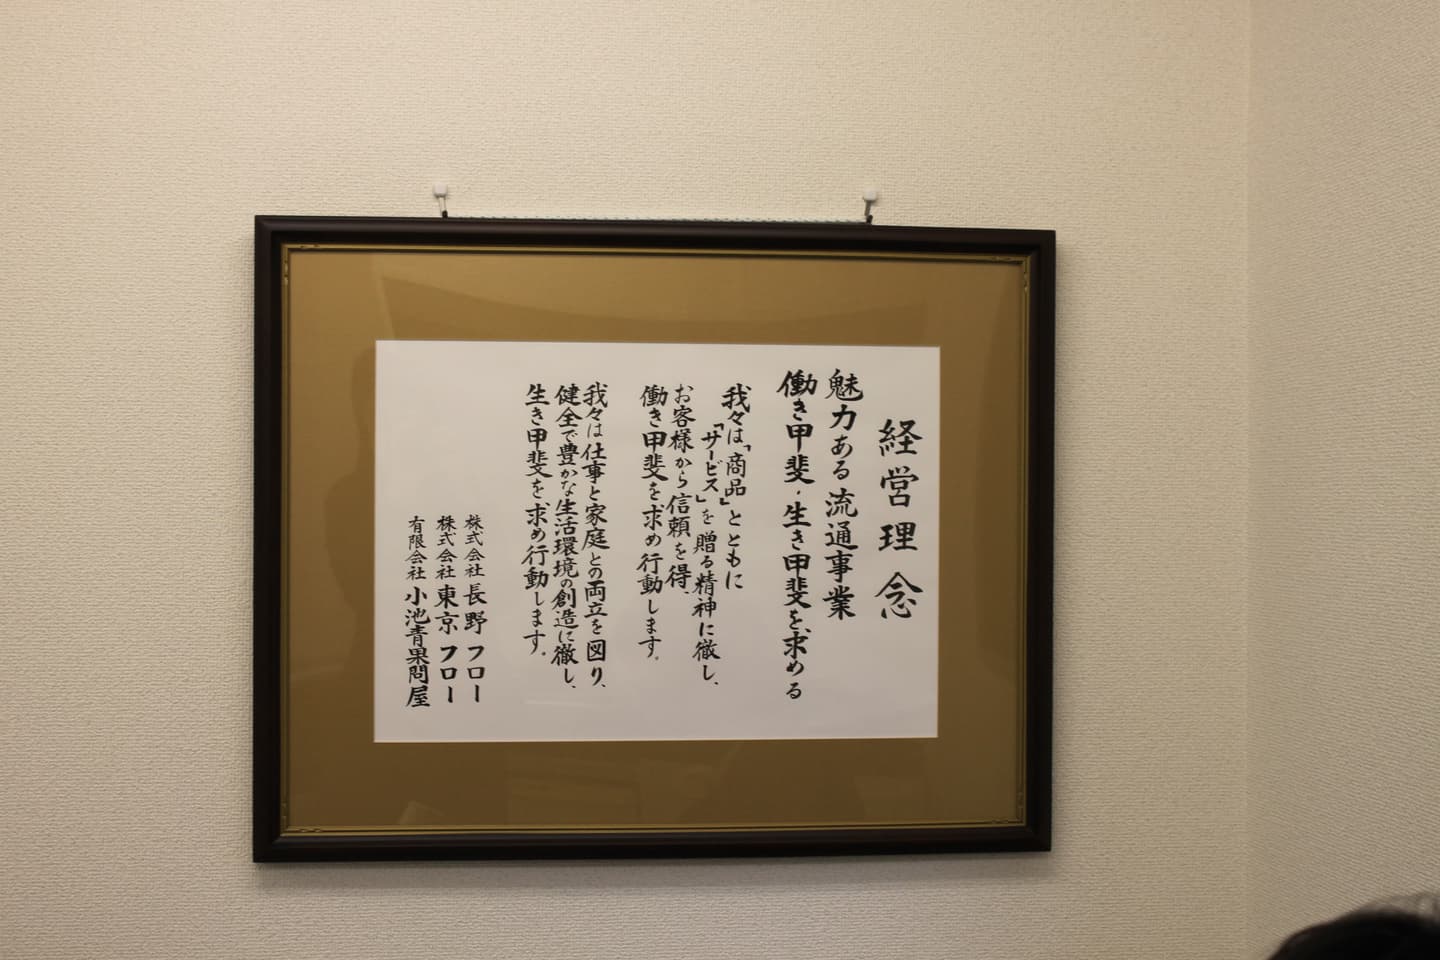 経営理念
魅力ある流通事業
働き甲斐・生き甲斐を求める
我々は「商品」とともに
「サービス」を贈る精神に徹し、
お客様から信頼を得、
働き甲斐を求め行動します。
我々は仕事と家庭との両立を図り、
健全で豊かな生活環境の創造に徹し、
生き甲斐を求め行動します。
株式会社 長野フロー
株式会社 東京フロー
有限会社 小池青果問屋